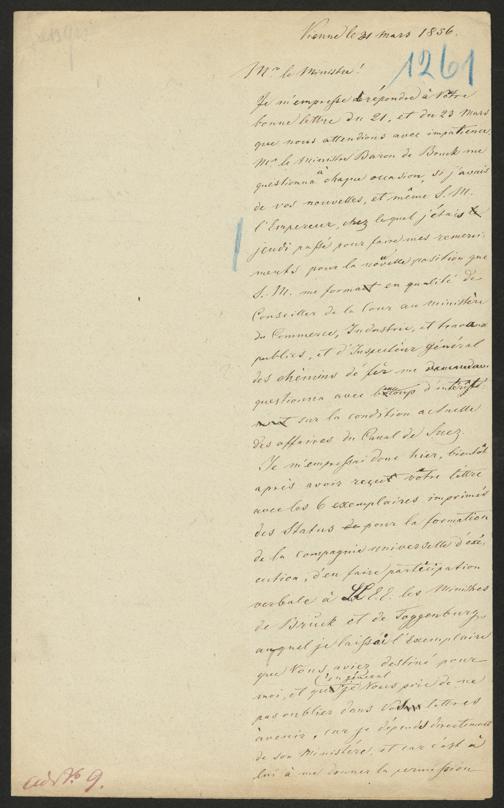 Vienne le 31 mars 1856.
1261
Mr le Ministre!
Je m'empresse de répondre à Votre
bonne lettre du 21, et du 23 Mars
que nous attendions avec impatience
Mr le Ministre Baron de Bruck me
questionna à chaque occasion, si j'avais
de vos nouvelles, et même S. M.
l'Empereur, chez lequel j'étais
jeudi passé pour faire mes remerci-
ments pour la nouvelle position que
S. M. me format en qualité de
Conseiller de la Cour au ministère
du Commerce, Industrie, et travaux
publics, et d'Inspecteur général
des chemins de fer me
questionna avec beaucoup d'intérêt
sur la condition actuelle
des affaires du Canal de Suez.
Je m'empressai donc hier, bientôt
après avoir reçu votre lettre
avec les 6 exemplaires imprimés
des Status pour la formation
de la compagnie universelle d'exé-
cution, d'en faire participation
verbale à LL.E.E. les Ministres
de Bruck et de Toggenburg,
auquel je laissai l'exemplaire
que Vous aviez destiné pour
moi, et que je Vous prie de ne
pas oublier dans Vos lettres
à venir, car je dépends directement
de son Ministère, et car c'est à
lui à me donner la permission
ad No 9.